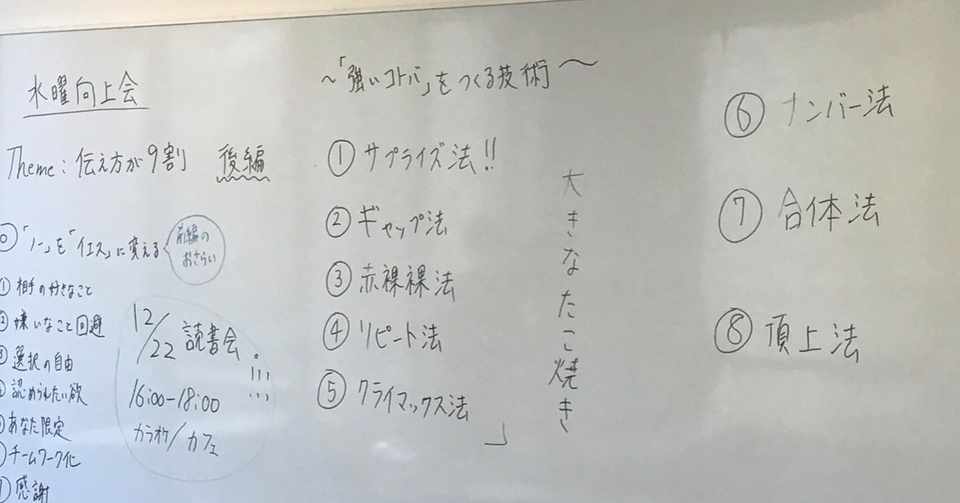 水曜向上会
Theme: 伝え方が9割 後編
◎「ノー」を「イエス」に変える
前編の
おさらい
① 相手の好きなこと
② 嫌いなこと回避
③ 選択の自由
④ 認められたい欲
⑤ あなた限定
⑥ チームワーク化
⑦ 感謝
12/22 読書会
16:00-18:00
カラオケ/カフェ
〜「強いコトバ」をつくる技術〜
① サプライズ法!!
② ギャップ法
③ 赤裸裸法
④ リピート法
⑤ クライマックス法
大きなたこ焼き
⑥ ナンバー法
⑦ 合体法
⑧ 頂上法